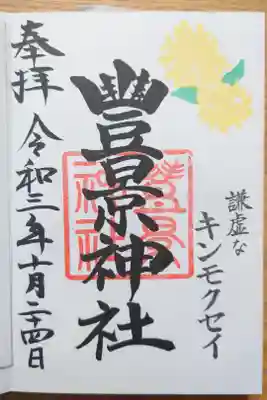 謙虚な
キンモクセイ
豊景神社
奉拝
令和三年十月二十四日